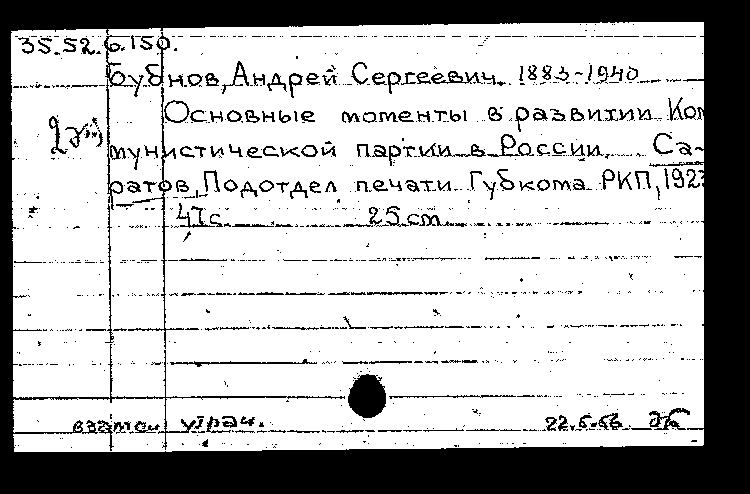 35.52.6.150.
Бубнов, Андрей Сергеевич. 1883-1940
Основные моменты в развитии Ком
мунистической партии в России. Са-
ратов, Подотдел печати Губкома РКП, 1923
47 с. 25 cm.
взамен утрач. 22.5.56